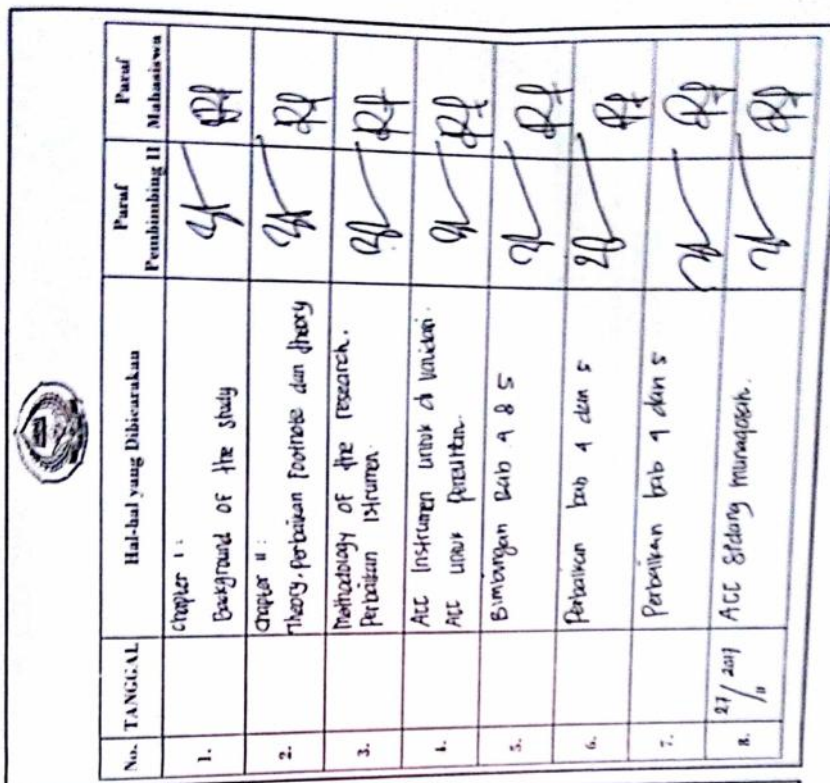 No. TANGGAL Hal-hal yang Dibicarakan Paraf Pembimbing II Paraf Mahasiswa
1. Chapter I :
Background of the study
2. Chapter II :
Theory, perbaikan Footnote dan theory
3. Methodology of the research.
Perbaikan Istrumen.
4. ACC Instrumen untuk di Validasi.
ACC untuk Penelitian.
5. Bimbingan Bab 4 & 5
6. Perbaikan bab 4 dan 5
7. Perbaikan bab 4 dan 5
8. 27/2017
11
ACC Sidang munaqosah.